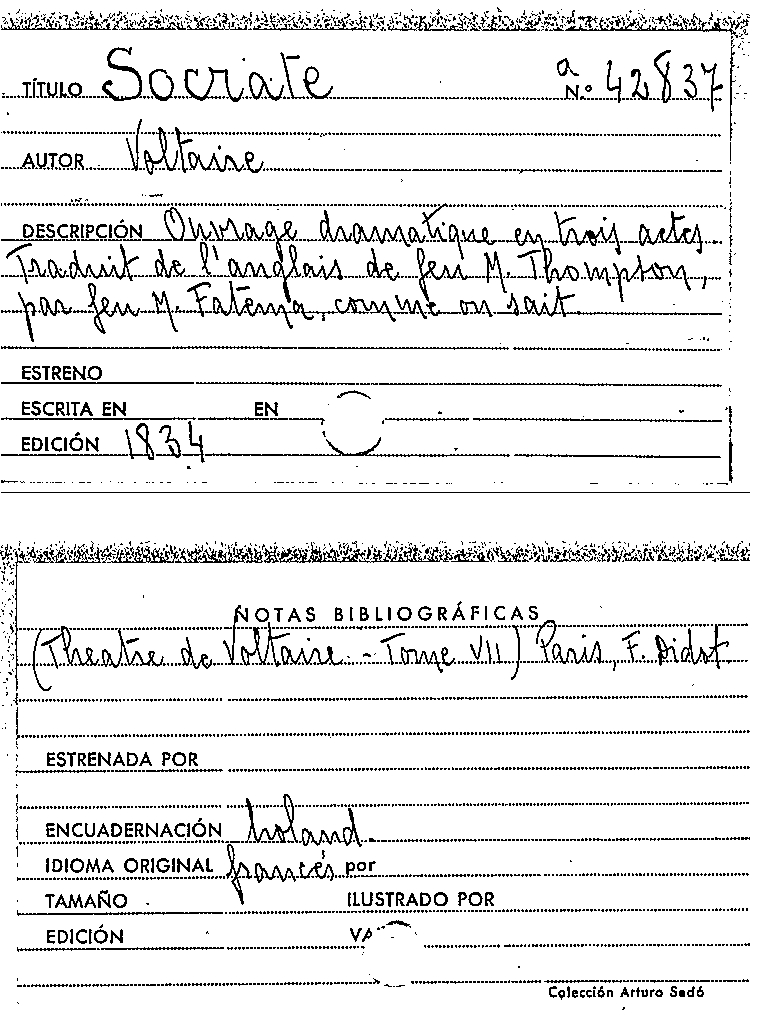 TÍTULO Socrate a N.º 42837
AUTOR Voltaire
DESCRIPCIÓN Ouvrage dramatique en trois actes.
Traduit de l'anglais de feu M. Thompton,
par feu M. Fatema, comme on sait.
ESTRENO
ESCRITA EN EN
EDICIÓN 1834
NOTAS BIBLIOGRÁFICAS
(Theatre de Voltaire - Tome VII) Paris, F. Didot
ESTRENADA POR
ENCUADERNACIÓN holand.
IDIOMA ORIGINAL francés por
TAMAÑO ILUSTRADO POR
EDICIÓN
Colección Arturo Sedó